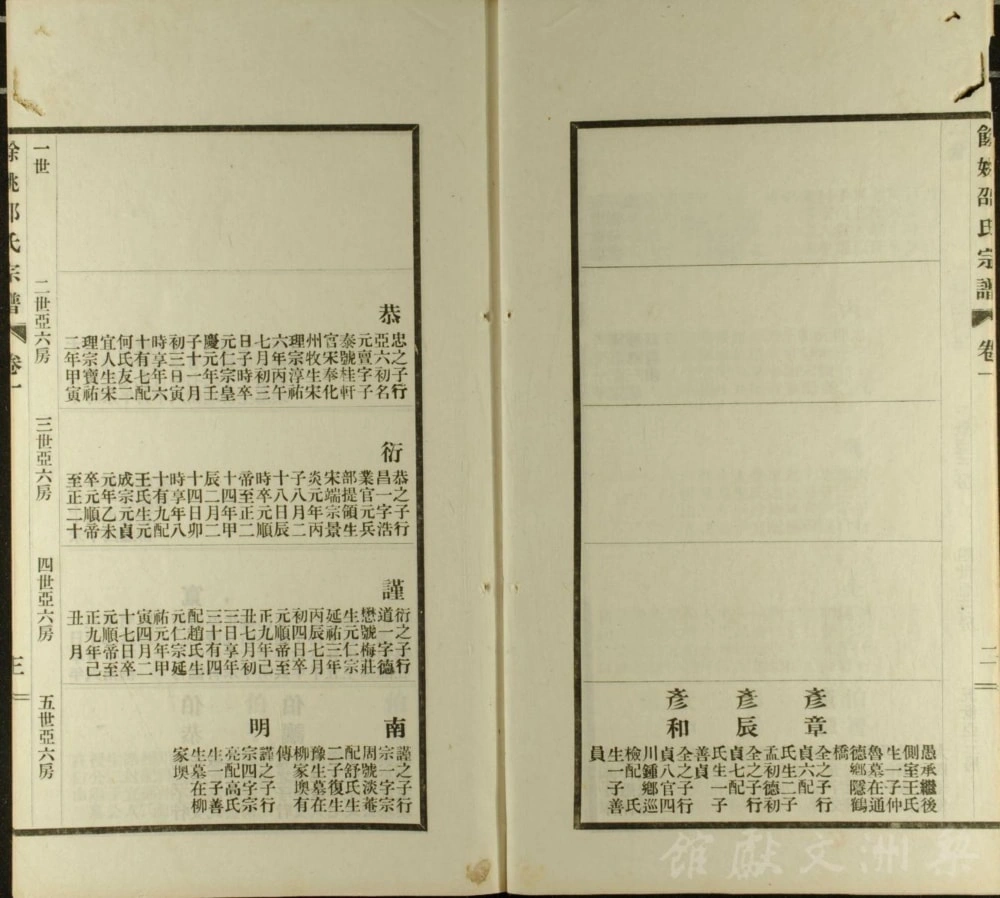 餘姚邵氏宗譜 卷一 二
愚承繼後
側室王氏
生一子仲
魯墓在通
德鄉隱鶴
橋
彥章
全之子行
貞六配
氏生二子
孟初德初
彥辰
全之子行
貞七配
氏生一子
善貞
彥和
全之子行
貞八官四
川鍾鄉巡
檢配 氏
生一子善
員
恭
忠之子行
亞六初名
元賣字子
泰號桂軒
官宋奉化
州牧生宋
理宗淳祐
六年丙午
七月初三
日子時卒
元仁宗皇
慶元年壬
子十一月
初三日寅
時享年六
十有七配
何氏友二
宜人生宋
理宗寶祐
二年甲寅
衍
恭之子行
昌一字浩
業官元兵
部提領生
宋端宗景
炎元年丙
子八月二
十八日辰
時卒元順
帝至正二
十四年甲
辰二月二
十四日卯
時享年八
十有九配
王氏生元
成宗元貞
元年乙未
卒元順帝
至正二十
謹
衍之子行
道一字德
懋號梅莊
生元仁宗
延祐三年
丙辰七月
初四日卒
元順帝至
正九年己
丑七月初
三日享年
三十有四
配趙氏生
元仁宗延
祐元年甲
寅四月二
十七日卒
元順帝至
正九年己
丑 月
南
謹之子行
宗一字宗
周號淡菴
配舒氏生
二子復生
豫生墓在
柳家墺有
傳
明
謹之子行
宗四字宗
亮配高氏
生一子善
生墓在柳
家墺
一世
二世亞六房
三世亞六房
四世亞六房
五世亞六房
餘姚邵氏宗譜 卷一 三
梨洲文獻館